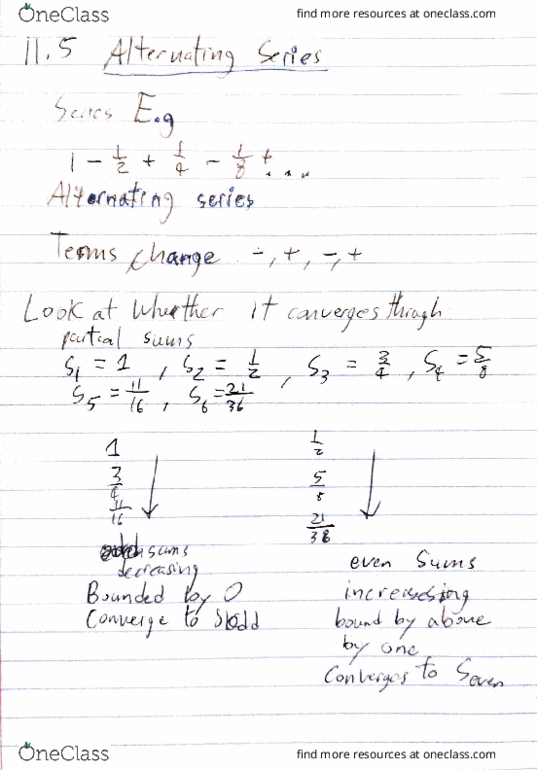 OneClass find more resources at oneclass.com
11.5 Alternating Series
Series E.g
1 - 1/2 + 1/4 - 1/8 + ...
Alternating series
Terms change -, +, -, +
Look at whether it converges through
partial sums
S1 = 1 , S2 = 1/2 , S3 = 3/4 , S4 = 5/8
S5 = 11/16 , S6 = 21/36
1 1/2
3/4 5/8
11/16 21/38
sums
decreasing
Bounded by 0
Converge to Sodd
even Sums
increasing
bound by above
by one
Converges to Seven
OneClass find more resources at oneclass.com